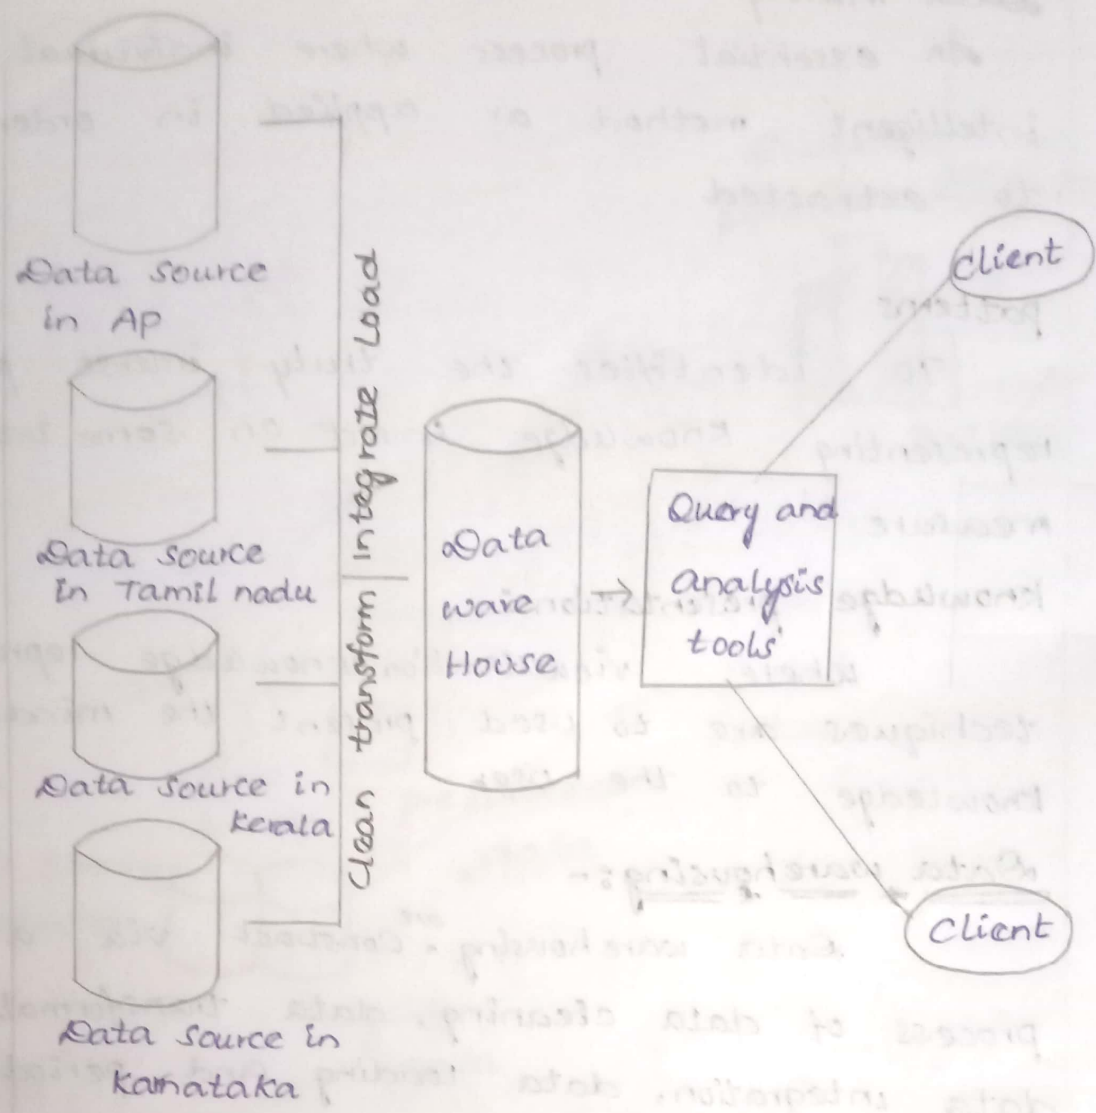 Data source
in AP
Data source
in Tamil nadu
Data source in
kerala
Data source in
karnataka
Clean transform Integrate Load
Data
ware
House
Query and
analysis
tools
Client
Client